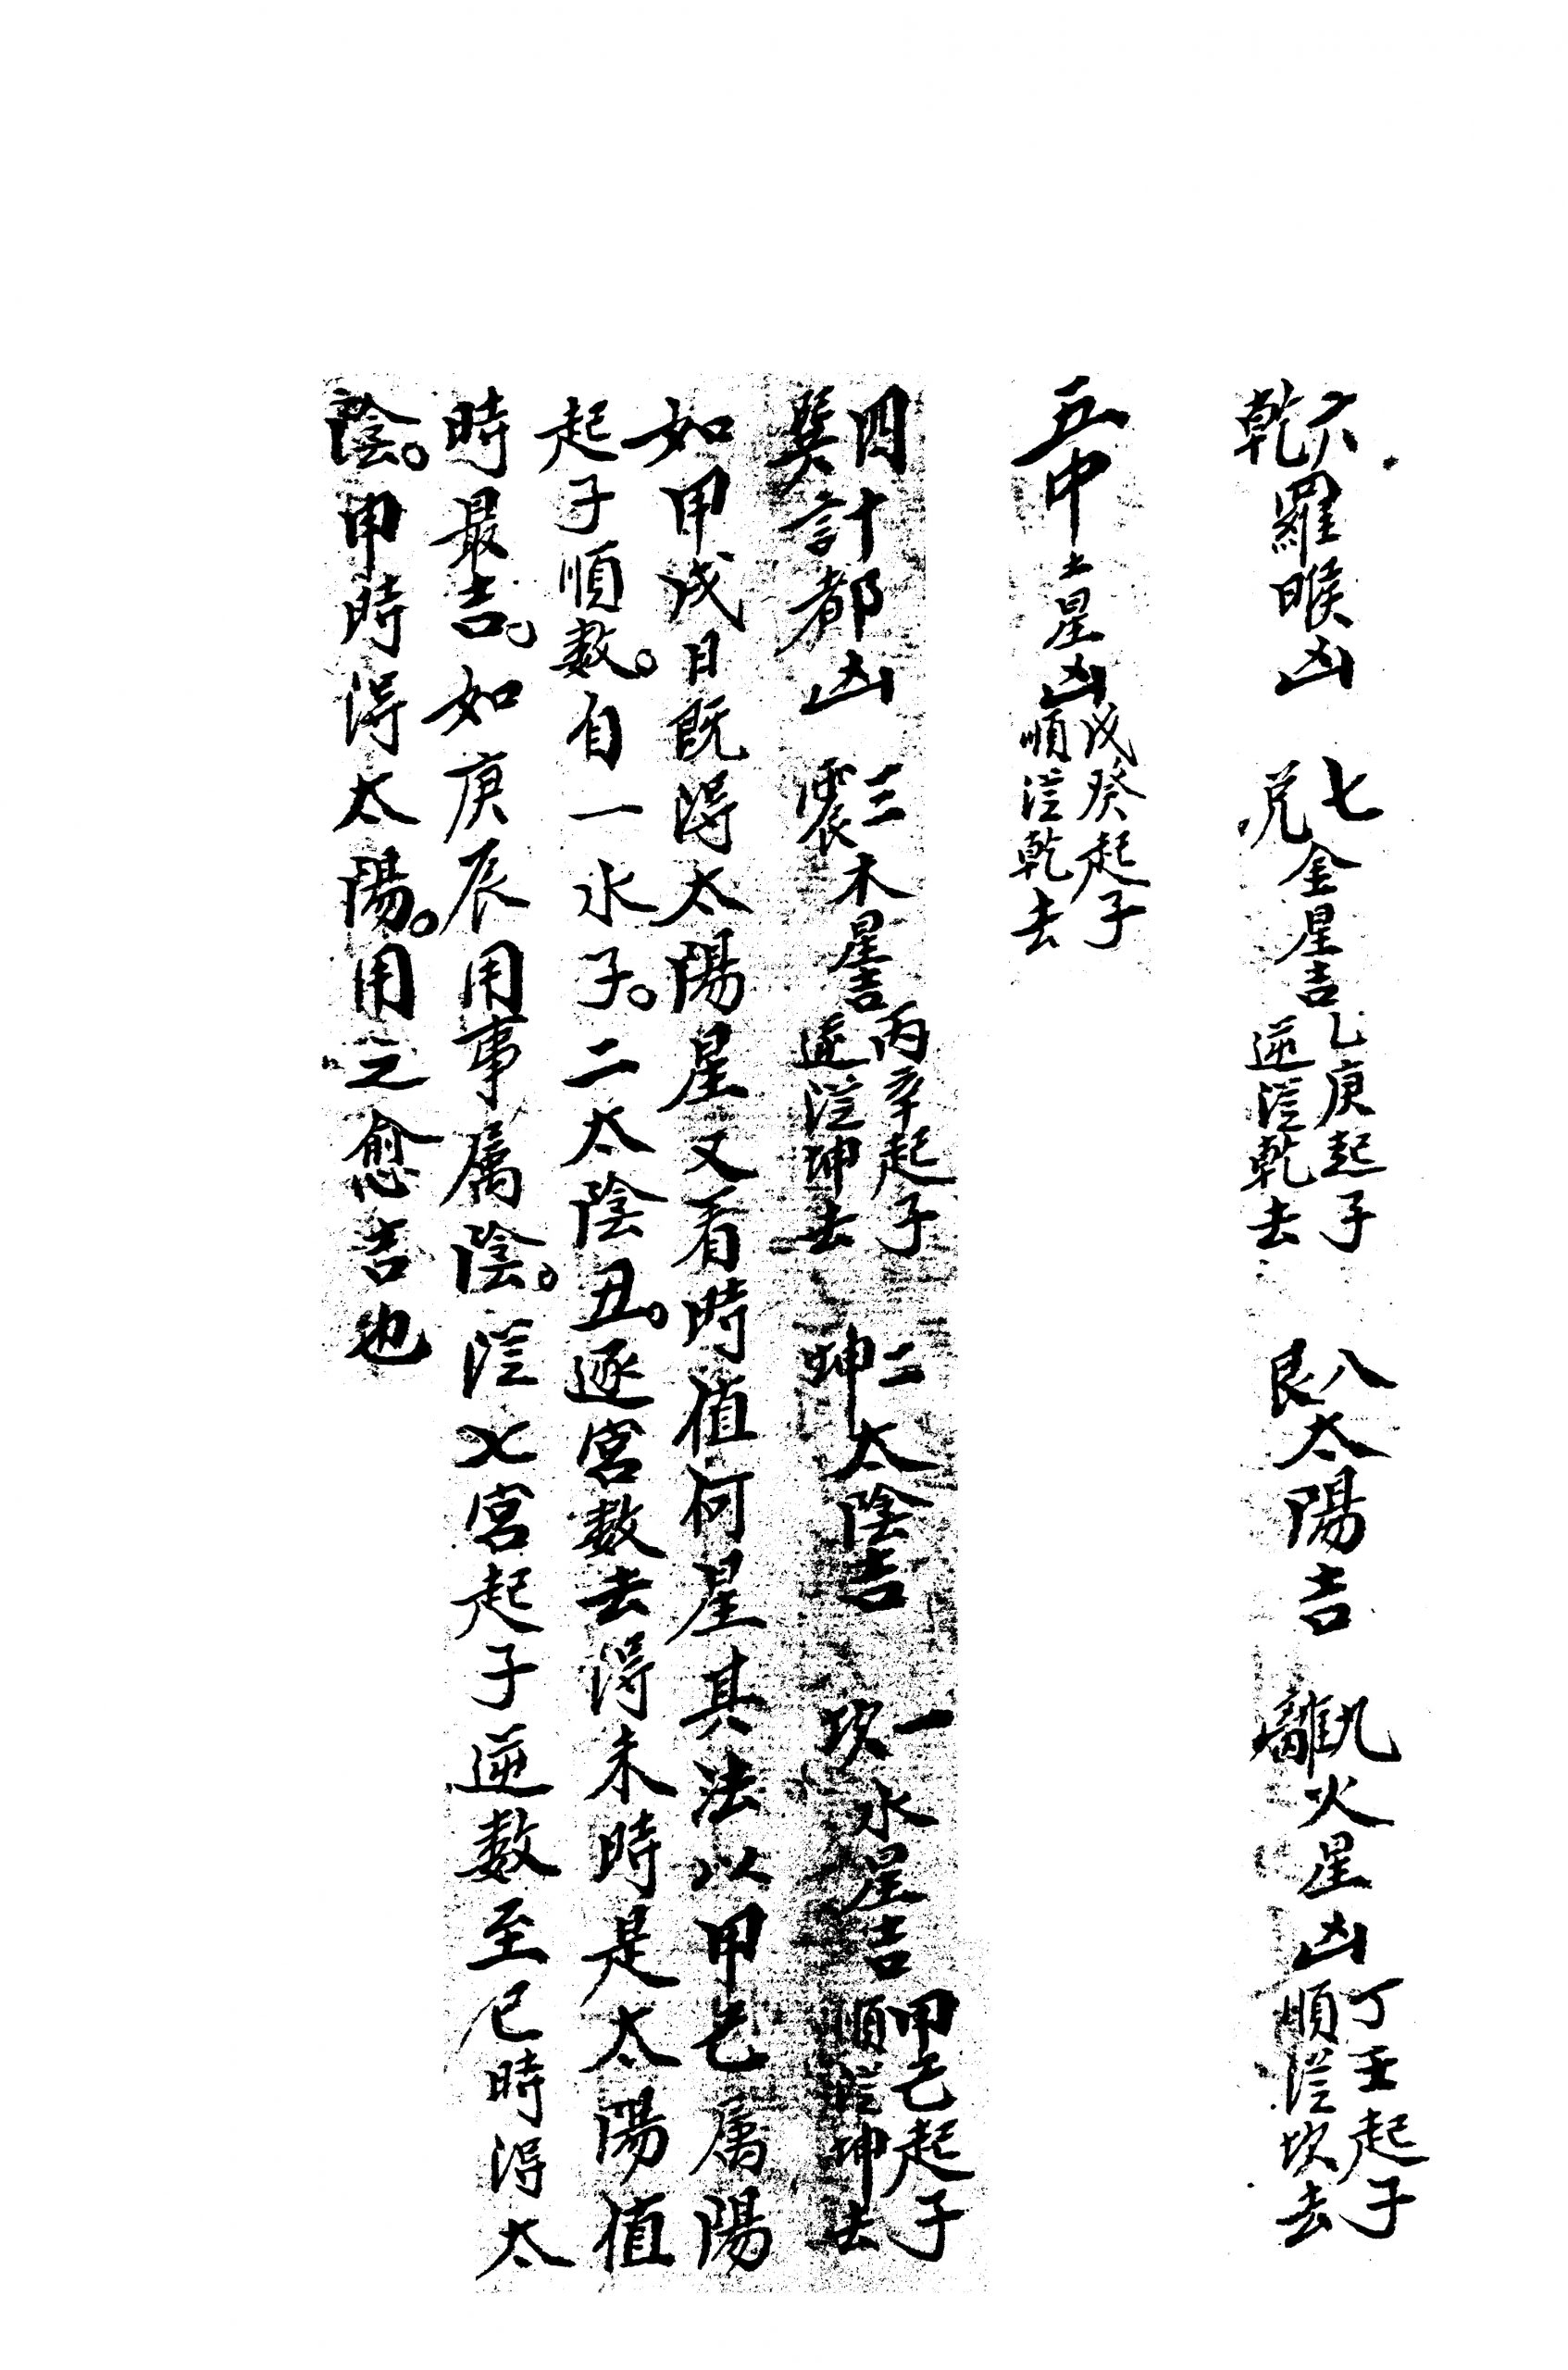 六乾羅睺凶 七兌金星吉乙庚起子逆從乾去 八艮太陽吉 九離火星凶丁壬起子順從坎去
五中土星凶戊癸起子順從乾去
四巽計都凶 三震木星吉丙辛起子逆從坤去 二坤太陰吉 一坎水星吉甲己起子順從坤去
如甲戌日既得太陽星又看時值何星其法以甲己屬陽
起子順数。自一水子。二太陰丑。逐宮数去得未時是太陽值
時最吉。如庚辰用事属陰。從七宮起子逆数至巳時得太
陰。甲時得太陽。用之愈吉也